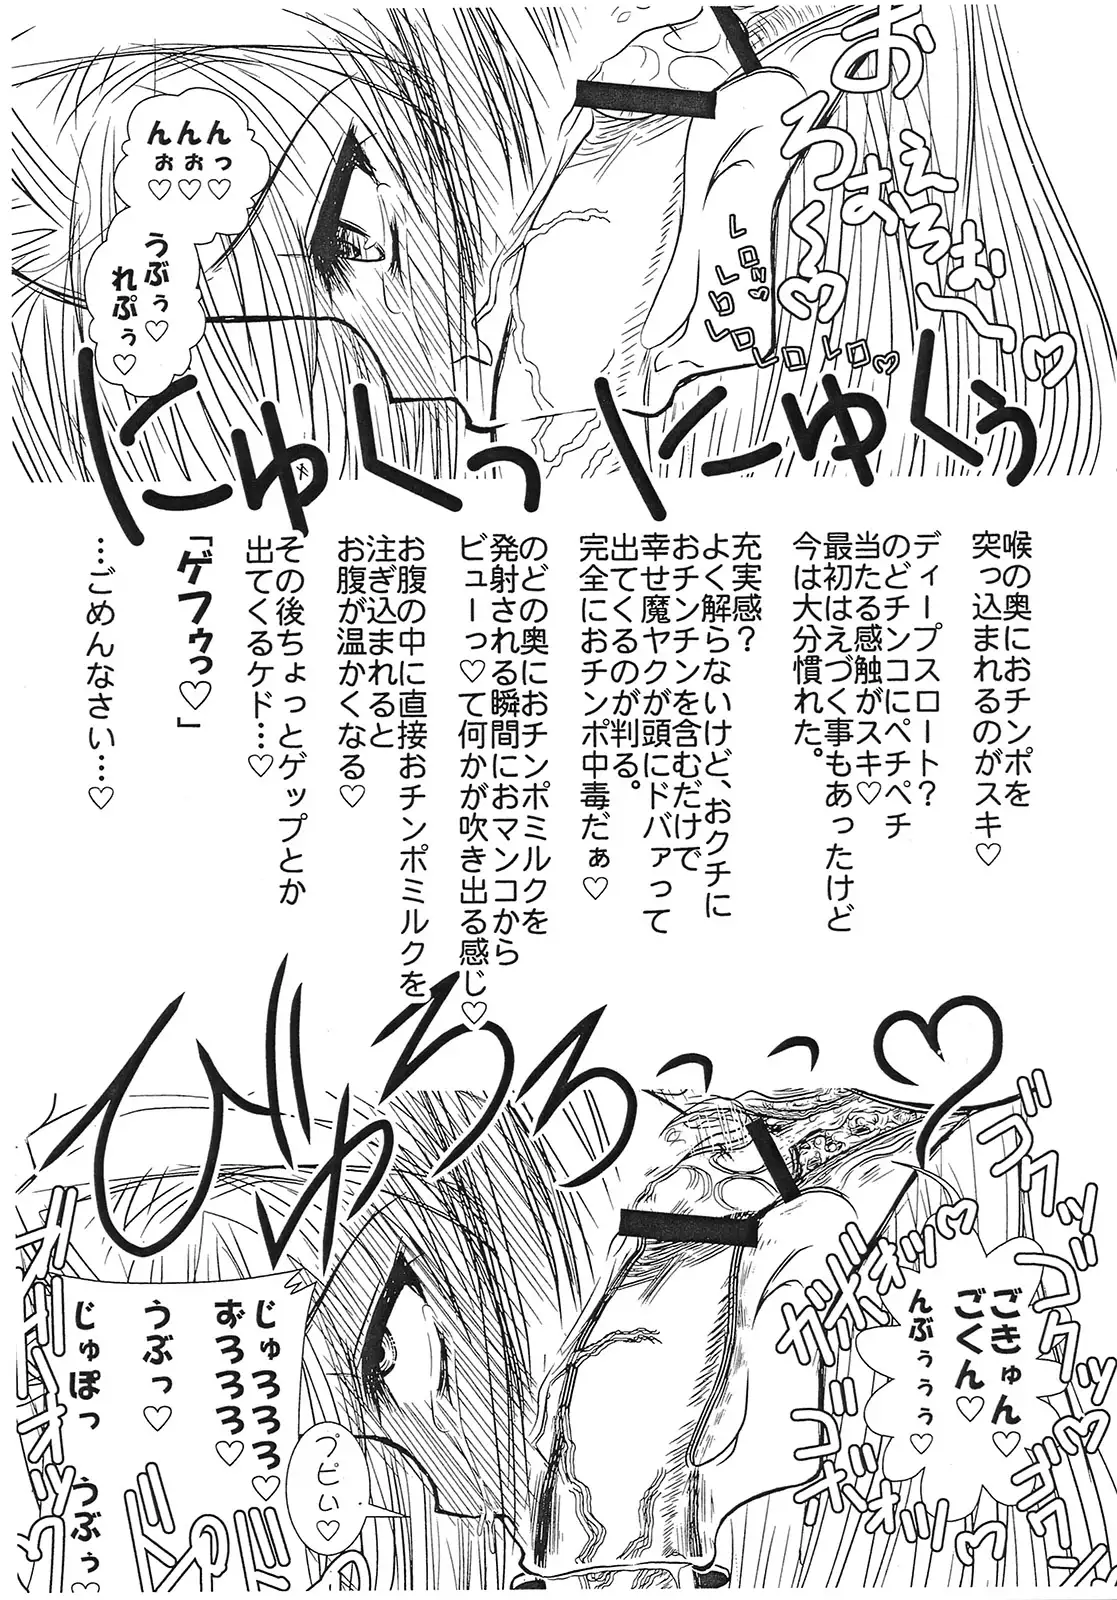 おえろぉお〜♡
ろぉお〜〜♡
レロッ♡
レロレロ
レロレロ♡
んんん
ぉぉっ
♡♡♡
うぶぅ♡
れぷぅ♡
にゅくっ
にゅくぅ
喉の奥におチンポを
突っ込まれるのがスキ♡
ディープスロート?
のどチンコにペチペチ
当たる感触がスキ♡
最初はえづく事もあったけど
今は大分慣れた。
充実感?
よく解らないけど、おクチに
おチンチンを含むだけで
幸せ魔ヤクが頭にドバァって
出てくるのが判る。
完全におチンポ中毒だぁ♡
のどの奥におチンポミルクを
発射される瞬間におマンコから
ビューっ♡て何かが吹き出る感じ♡
お腹の中に直接おチンポミルクを
注ぎ込まれると
お腹が温かくなる♡
その後ちょっとゲップとか
出てくるケド…♡
「ゲフゥっ♡」
…ごめんなさい…♡
びゅろろっっ♡
ゴクッ
ゴクッ
ごきゅん♡
ごくん♡
んぶぅぅぅ♡
プピぃ♡
じゅろろろ♡
おろろろろ♡
うぶっ♡
じゅぽっ
うぶぅ♡